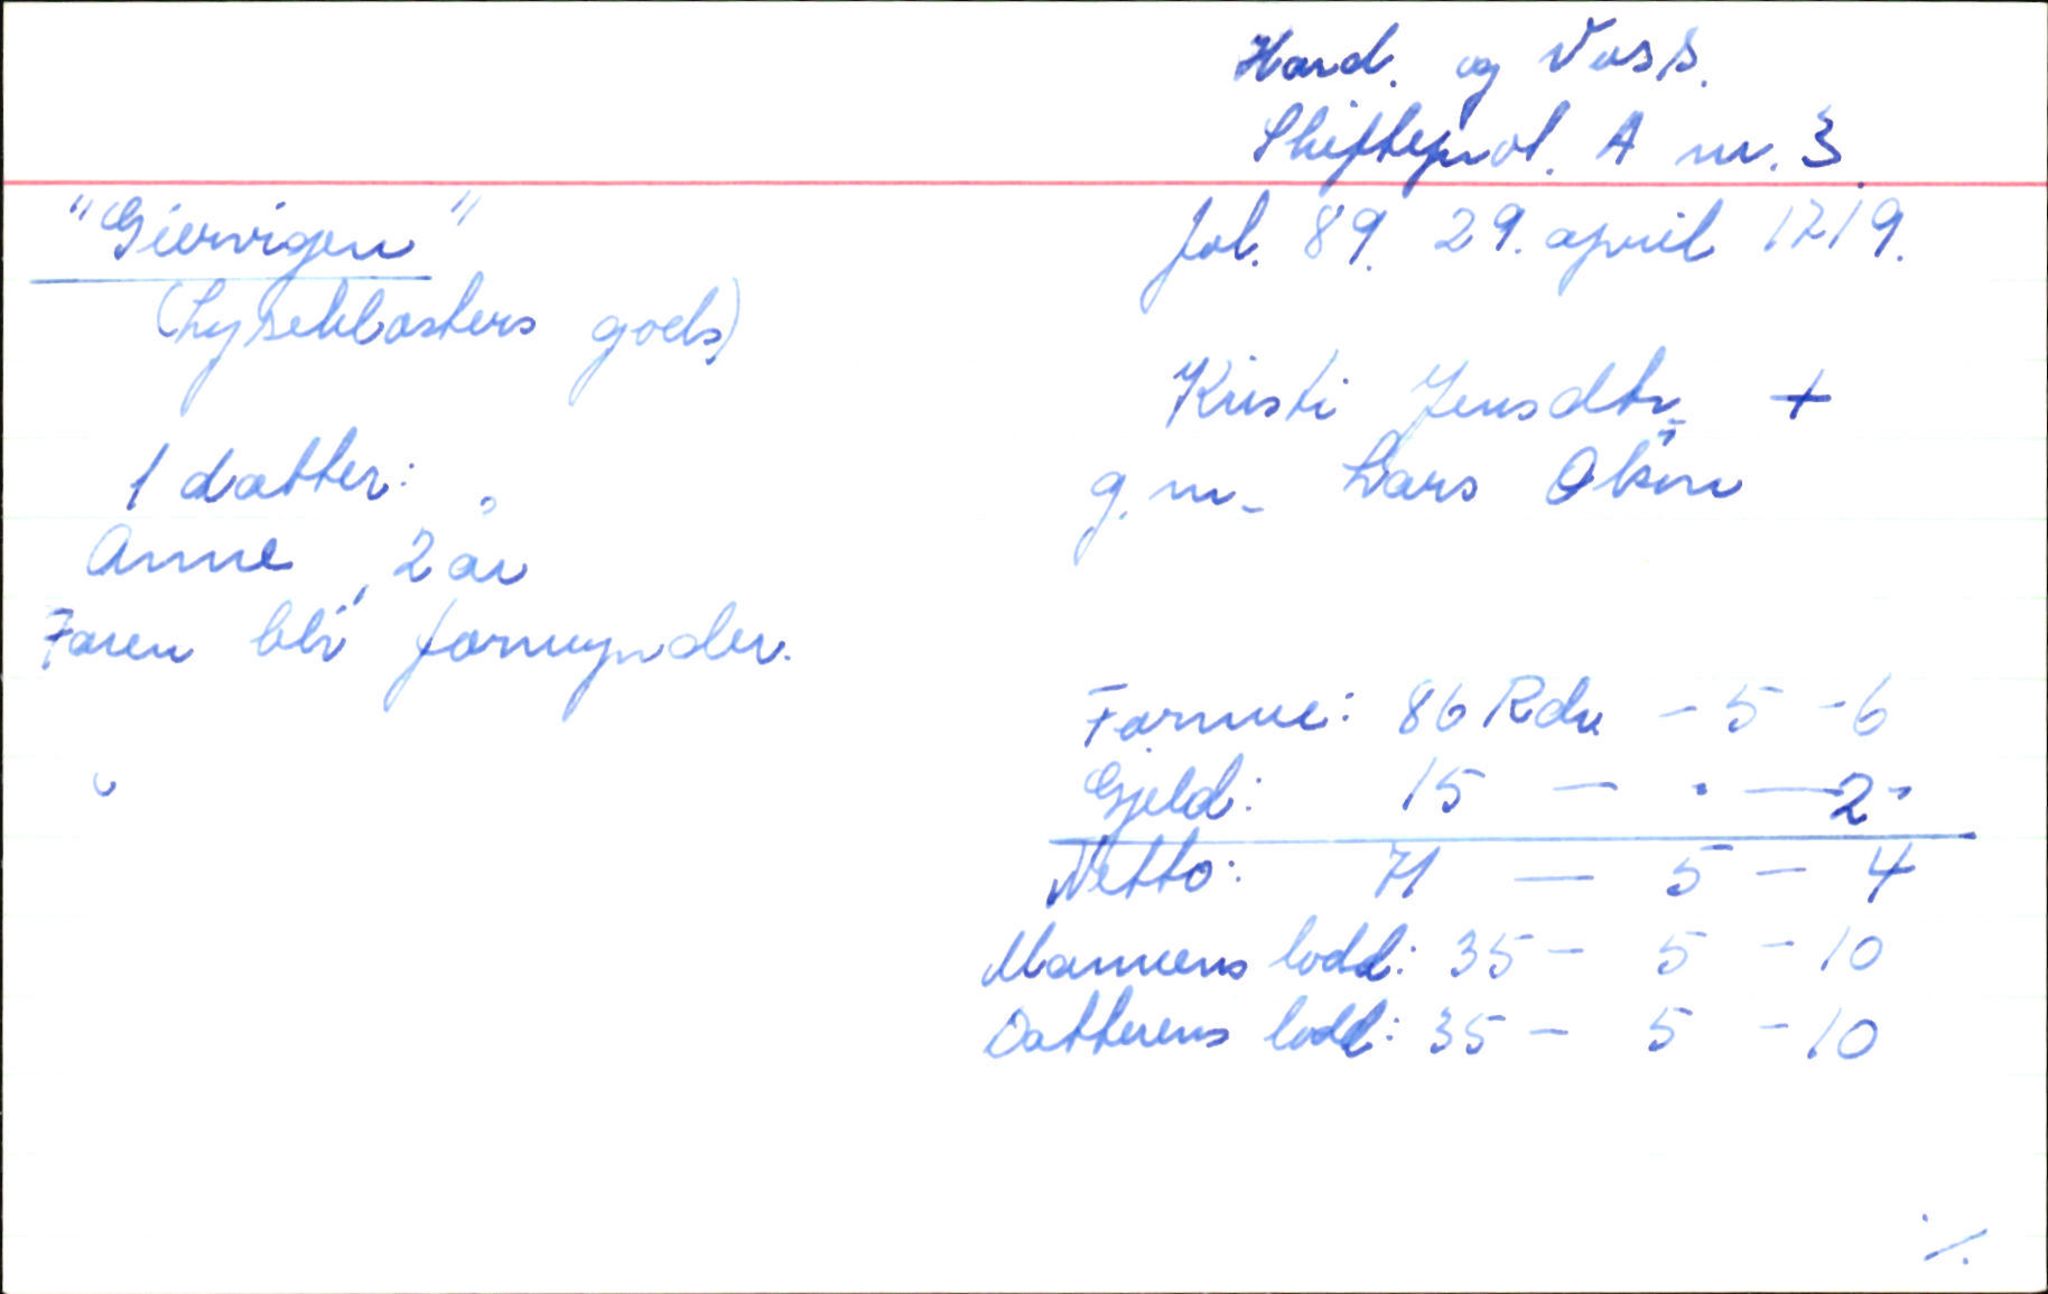 Hard. og Voss.
Skifteprol. A nr. 3.
fol. 89. 29. april 1719.
"Giervigen"
(Lyseklosters gods)
Kristi Jensdtr. +
g. m. Lars Olsen
1 datter:
Anne, 2 år
Faren blir formynder.
Formue: 86 Rdr. - 5 - 6
Gjeld: 15 - . - 2.
Netto: 71 - 5 - 4
Mannens lodd: 35 - 5 - 10
Datterens lodd: 35 - 5 - 10
./.